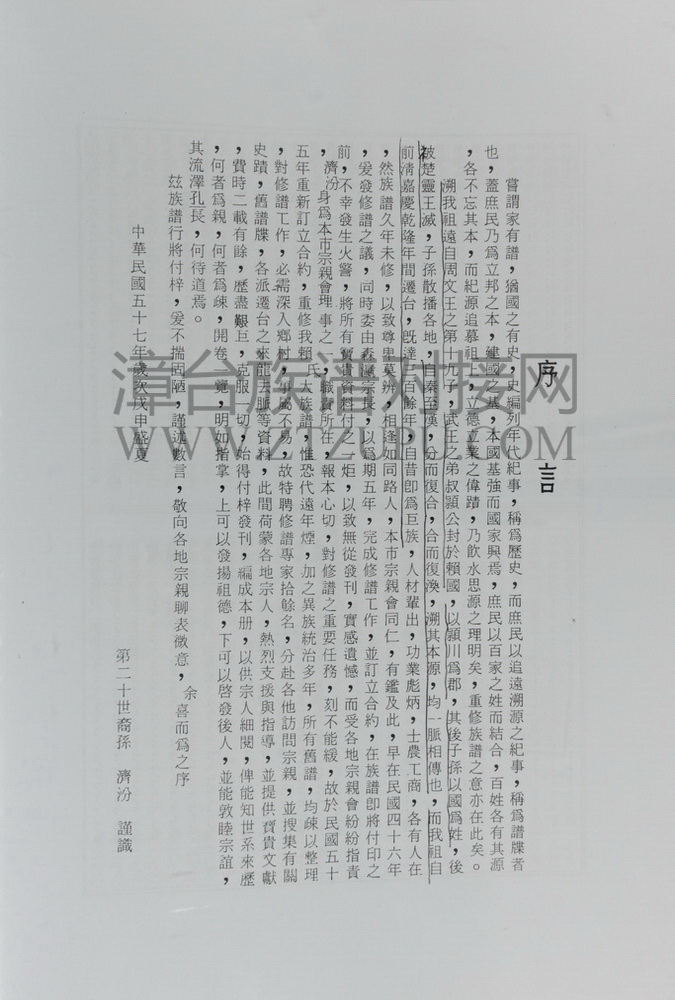 序言
嘗謂家有譜，猶國之有史，史編列年代紀事，稱爲歷史，而庶民以追遠溯源之紀事，稱爲譜牒者
也，蓋庶民乃爲立邦之本，建國之基，本國基強而國家興焉，庶民以百家之姓而結合，百姓各有其源
，各不忘其本，而紀源追慕祖上，立德立業之偉蹟，乃飲水思源之理明矣，重修族譜之意亦在此矣。
溯我祖遠自周文王之第十九子，武王之弟叔頴公封於賴國，以頴川爲郡，其後子孫以國爲姓，後
被楚靈王滅，子孫散播各地，自秦至漢，分而復合，合而復渙，溯其本源，均一脈相傳也，而我祖自
前淸嘉慶乾隆年間遷台，旣達二百餘年，自昔卽爲巨族，人材輩出，功業彪炳，士農工商，各有人在
，然族譜久年未修，以致尊卑莫辨，相逢如同路人，本市宗親會同仁，有鑑及此，早在民國四十六年
，爰發修譜之議，同時委由森 宗長，以爲期五年，完成修譜工作，並訂立合約，在族譜卽將付印之
前，不幸發生火警，將所有寶貴資料付之一炬，以致無從發刊，實感遺憾，而受各地宗親紛紛指責
，濟汾身爲本市宗親會理事之一，職責所在，報本心切，對修譜之重要任務，刻不能緩，故於民國五十
五年重新訂立合約，重修我賴氏大族譜，惟恐代遠年煙，加之異族統治多年，所有舊譜，均疎以整理
，對修譜工作，必需深入鄉村，事屬不易，故特聘修譜專家拾餘名，分赴各他訪問宗親，並搜集有關
史蹟，舊譜牒，各派遷台之來龍去脈等資料，此間荷蒙各地宗人，熱烈支援與指導，並提供寶貴文獻
，費時二載有餘，歷盡艱巨，克服一切，始得付梓發刊，編成本册，以供宗人細閱，俾能知世系來歷
，何者爲親，何者爲疎，開卷一覽，明如指掌，上可以發揚祖德，下可以啓發後人，並能敦睦宗誼，
其流澤孔長，何待道焉。
玆族譜行將付梓，爰不揣固陋，謹述數言，敬向各地宗親聊表微意，余喜而爲之序
中華民國五十七年歲次戊申盛夏
第二十世裔孫 濟汾 謹識
漳台族谱对接网
WWW.ZTZUPU.COM